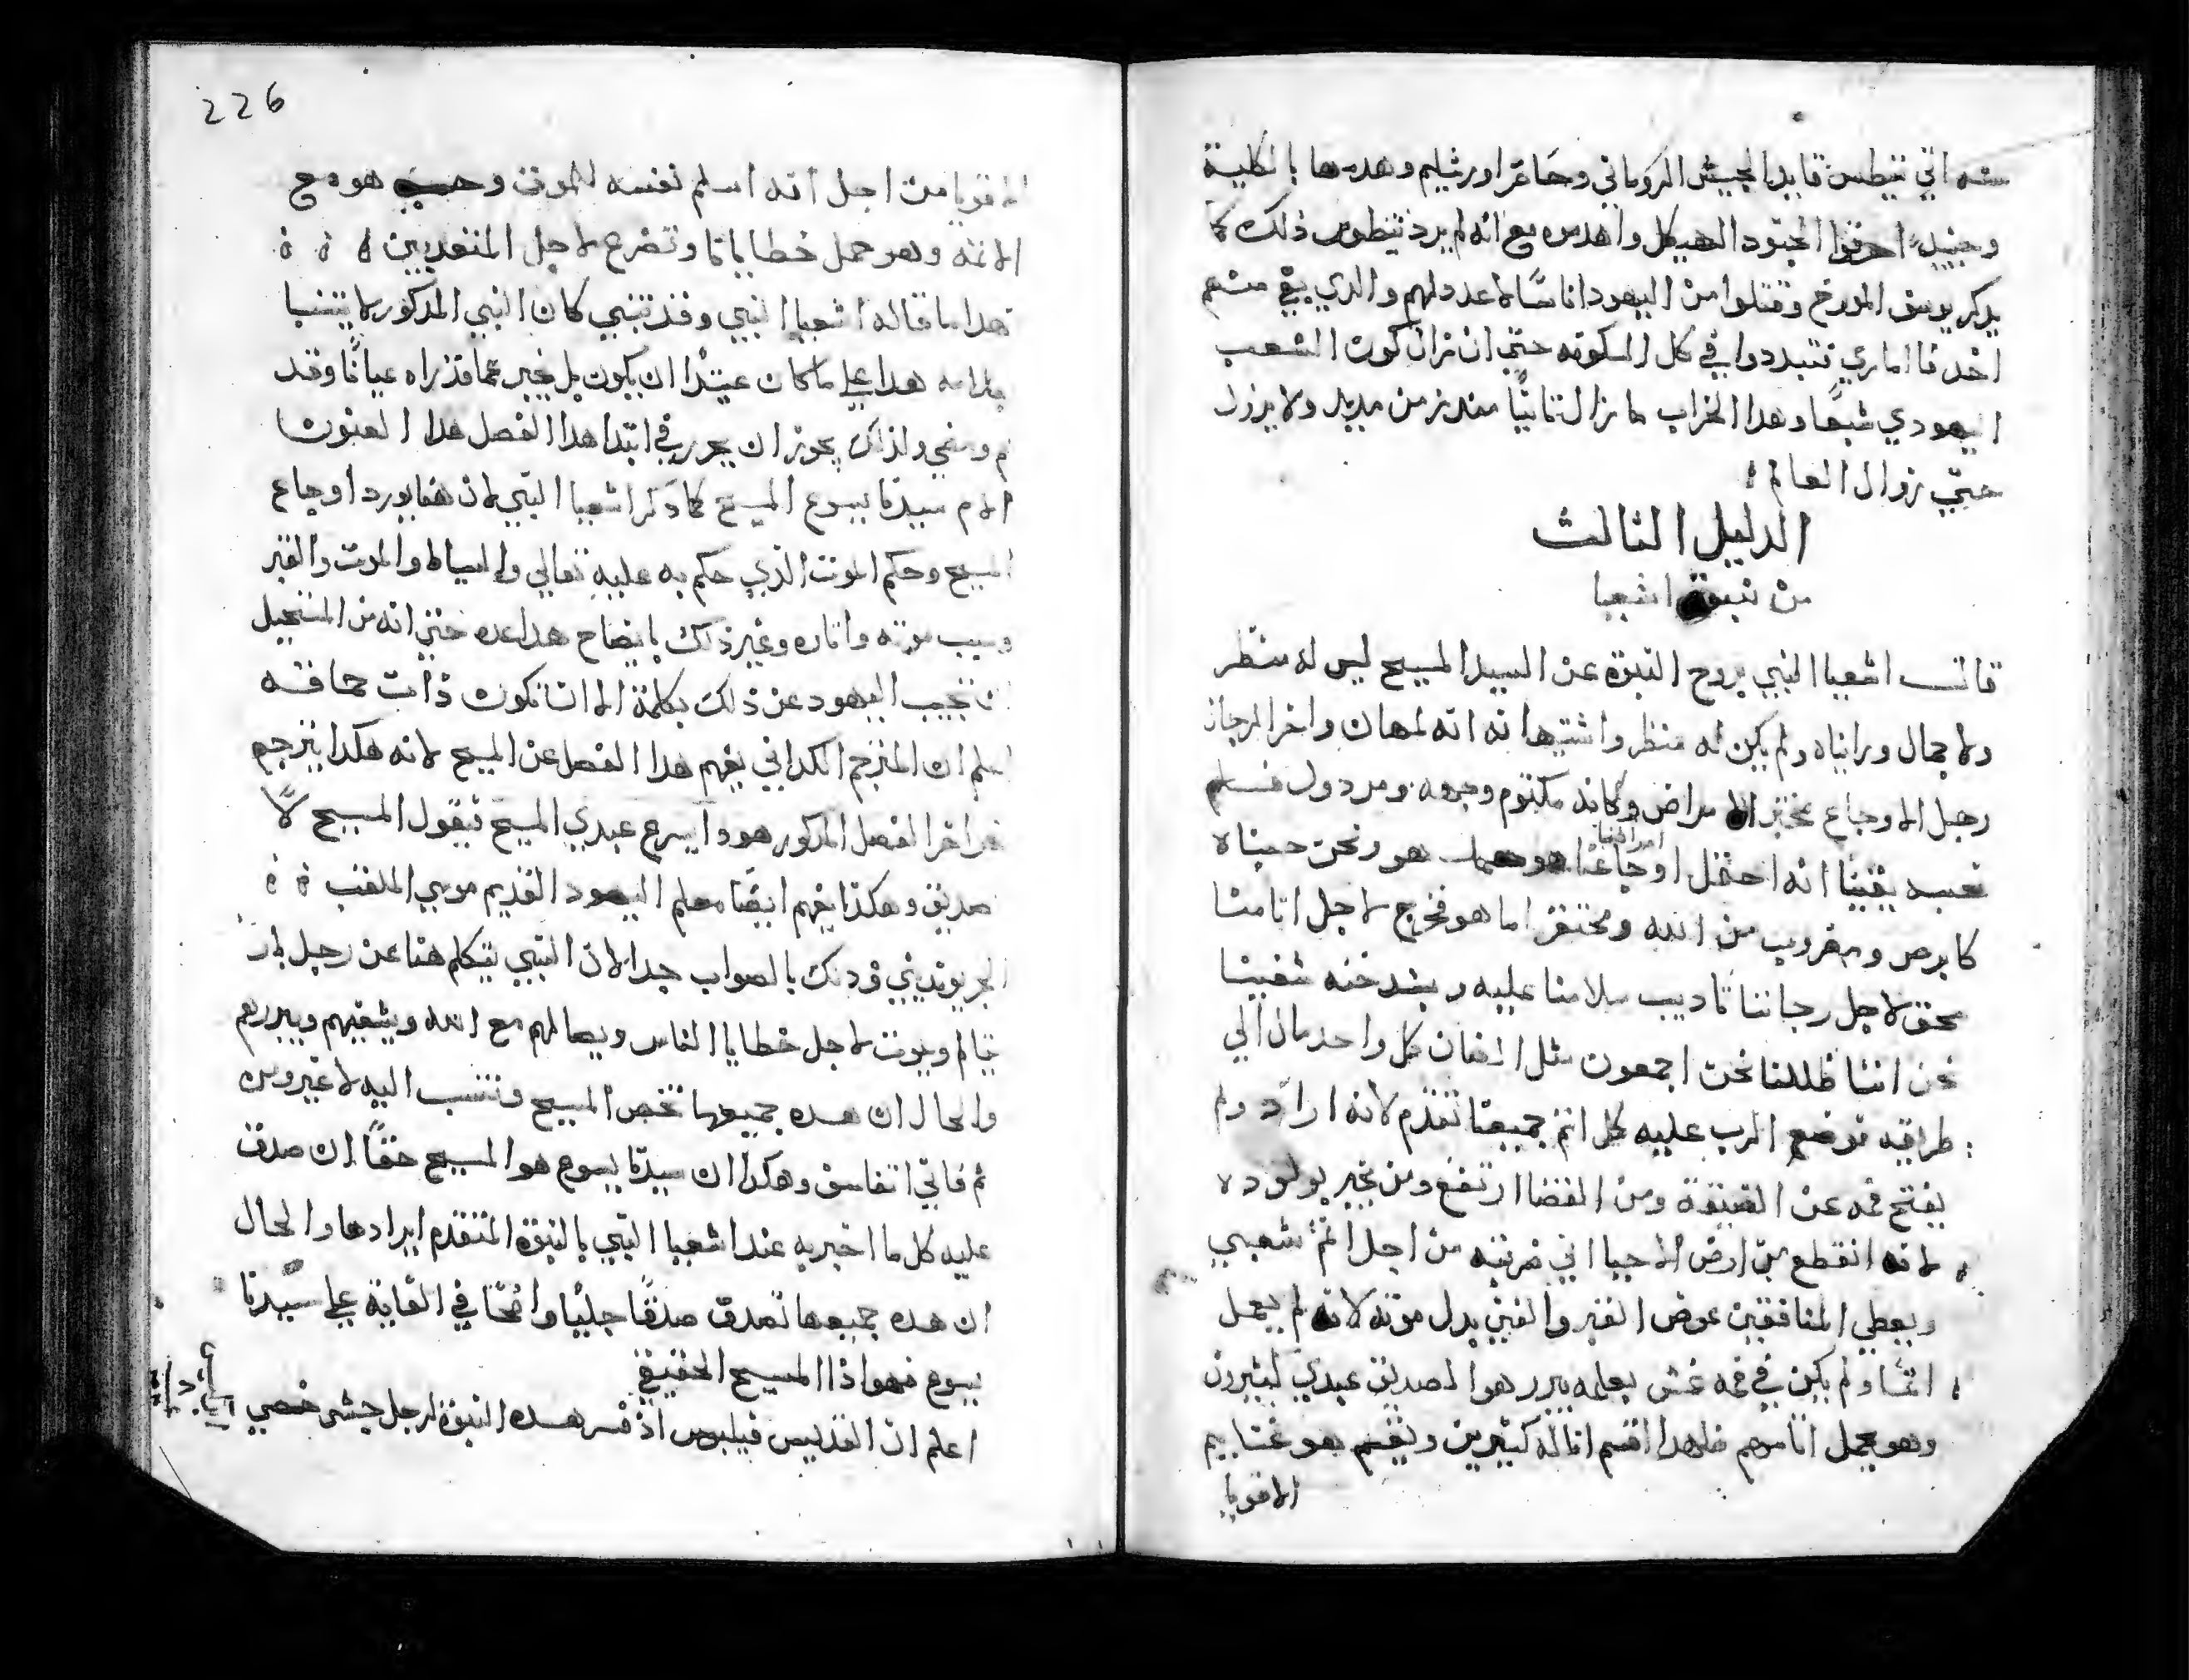 سنه اتي تيطس قايد الجيش الروماني وحاصر اورشليم وهدمها بالكلية
وحينيدٍ احرقوا الجنود الهيكل واهدموه مع انه لم يرد تيطوس ذلك كما
يدكر يوسف المورخ وقتلوا من اليهود اناسًا لا عدد لهم والدي بقي منهم
اخدوا اساري تتبددوا في كل المسكونه حتي ان نزان كون الشعب
اليهودي شبعًا وهدا الخراب ما زال ثابتًا مندز من مديد ولا يزول
حتي زوال العالم
الدليل الثالث
من نبوة اشعيا
قالت اشعيا النبي بروح النبوة عن السيد المسيح ليس له منظر
ولا جمال ورايناه ولم يكن له منظر واشتهيناه انه لمهان واخر الرجال
رجل الاوجاع مختبر الامراض وكانه مكتوم وجهه ومردول فلم
نحسبه يقينًا انه احتمل اوجاعنا امراضنا هو حمل هو ونحن حسبناه
كابرص ومضروب من الله ومحتقر اما هو فجرح لاجل اثامنا
سحق لاجل رجاستنا تاديب سلامنا عليه وبشدخته شفينا
نحن اننا ظللنا نحن اجمعون مثل الضان كل واحد مال الي
طريقه فوضع الرب عليه كل اثم جميعنا تقدّم لانه اراد ولم
يفتح فمه عن الضيقة ومن القضا ارتفع ومن يخبر بمولوده
لانه انقطع من ارض الاحيا اني ضربته من اجل اثم شعبي
ويعطي المنافقين عوض القبر والغني بدل موته لانه لم يعمل
اثمًا ولم يكن في فمه غش بعلمه يبرر هوا الصديق عبدي كثيرون
وهو يحمل اثامهم فلهدا اقسم اناله كثيرين ويقسم هو غنايم
الاقويا
226
الاقويا من اجل انه اسلم نفسه للموت وحسب هو مع
الاثمه وهو حمل خطايانا وتضرع لاجل المتعديين
هدا ما قاله اشعيا النبي وقد تنبي كان النبي المدكور لا يتنبا
هدا علي ما كان عتيدًا ان يكون بل يخبر عما قد راه عيانًا وقد
ومضي ولذلك يجوز ان يحرر في ابتدا هدا الفصل هدا العنوان
الام سيدنا يسوع المسيح كما ذكر اشعيا النبي لان هنا يورد اوجاع
المسيح وحكم الموت الذي حكم به عليه تعالي والسياط والموت والقبر
وسبب موته واثاره وغير ذلك بايضاح هدا عده حتي انه من المستحيل
ان تجيب اليهود عن ذلك بكلمة الا ان تكون ذات حماقه
اعلم ان المترجم الكلداني يفهم هدا الفصل عن المسيح لانه هكدا يترجم
اخر الفصل المدكور هودا يسرع عبدي المسيح فيقول المسيح لا
صديق وهكذا يفهم ايضًا معلم اليهود القديم موسي الملقب
وذلك بالصواب جدا لان النبي يتكلم هنا عن رجل بار
يتالم ويموت لاجل خطايا الناس ويصالهم مع الله ويشفيهم ويبررهم
والحال ان هده جميعها تخص المسيح وتنسب اليه لا غيره من
ثم فاتي اتفاسق وهكدا ان سيدنا يسوع هو المسيح حقًا ان صدق
عليه كل ما اخبر به عند اشعيا النبي بالنبوة المتقدم ايرادها والحال
ان هده جميعها تصدق صدقًا جليًا واضحًا في الغاية علي سيّدنا
يسوع فهو اذًا المسيح الحقيقي
اعلم ان القديس فيلبوس اذ فسر هده النبوة لرجل حبشي خصي